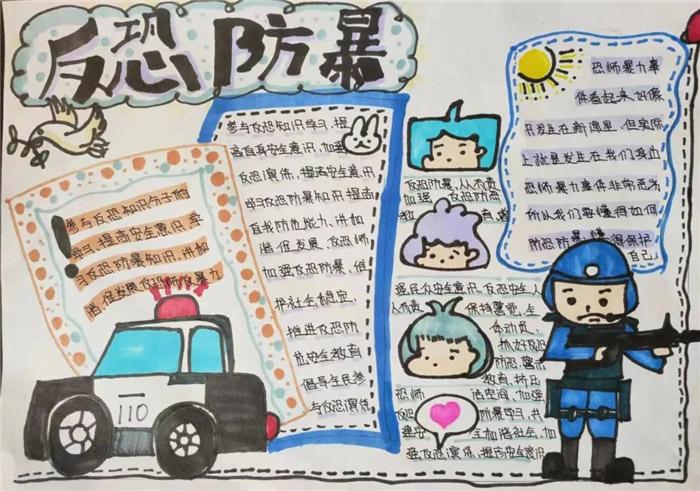 反恐防暴
参与反恐知识学习,提
高自身安全意识,加强
反恐演练,提高安全意识
学习反恐防暴知识提高
自我防范能力,讲加
谐促发展,反恐师
加强反恐防暴,维
护社会稳定,
推进反恐防
范安全教育
倡导全民参
与反恐演练
参与反恐知识句子们
学习,提高安全意识,学
习反恐防暴知识,讲和
谐,促发展反恐师反暴力
110
反恐防暴,人人有责
加强 反恐防范
教育
强民众安全意识,反恐安全,人
人有责 保持警觉,全
体动员,
抓好反恐
防范
教育,挤压
恐师 活空间,加强
反恐 防暴学习,共
建安 全和谐社会,加
强反恐演练,提高安全意识
恐师暴力事
件看起来,好像
只发生在新闻里,但实际
上就是发生在我们身边
恐师暴力事件非常可恶
所以我们要懂得如何
防恐防暴,懂得保护
自己